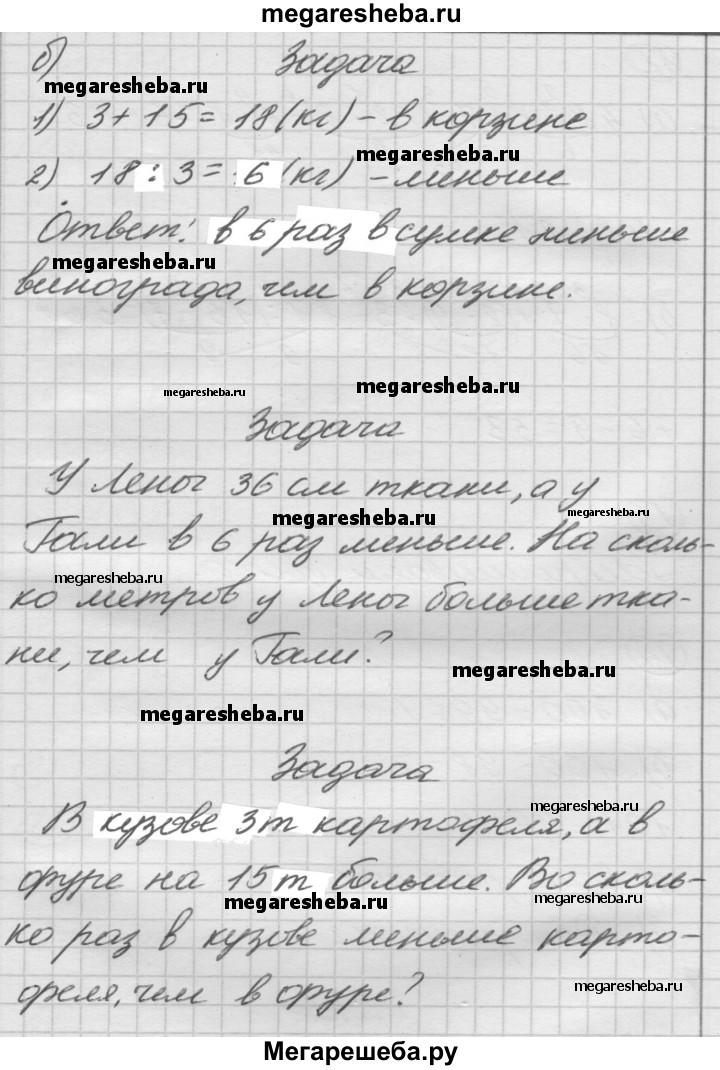 megaresheba.ru
б) Задача
megaresheba.ru
1) 3+15=18(кг) – в корзине
megaresheba.ru
2) 18:3=6(кг) – меньше
Ответ: в 6 раз в сумке миньше
megaresheba.ru
винограда, чем в корзине.
megaresheba.ru
megaresheba.ru
Задача
У Лены 36 см ткани, а у
megaresheba.ru
megaresheba.ru
Гали в 6 раз меньше. На сколь-
megaresheba.ru
ко метров у Лены больше тка-
ни, чем у Гали?
megaresheba.ru
megaresheba.ru
Задача
megaresheba.ru
В кузове 3т картофеля, а в
фуре на 15т больше. Во сколь-
megaresheba.ru
megaresheba.ru
ко раз в кузове меньше карто-
megaresheba.ru
феля, чем в фуре?
Мегарешеба.ру